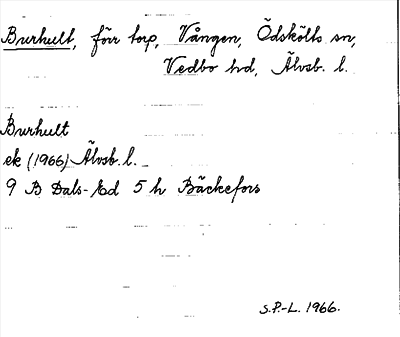 Burhult, förr torp, Vången, Ödskölts sn,
Vedbo hd, Älvsb. l.
Burhult
ek (1966) Älvsb. l.
9 B Dals-Ed 5 h Bäckefors
S.P.-L. 1966.